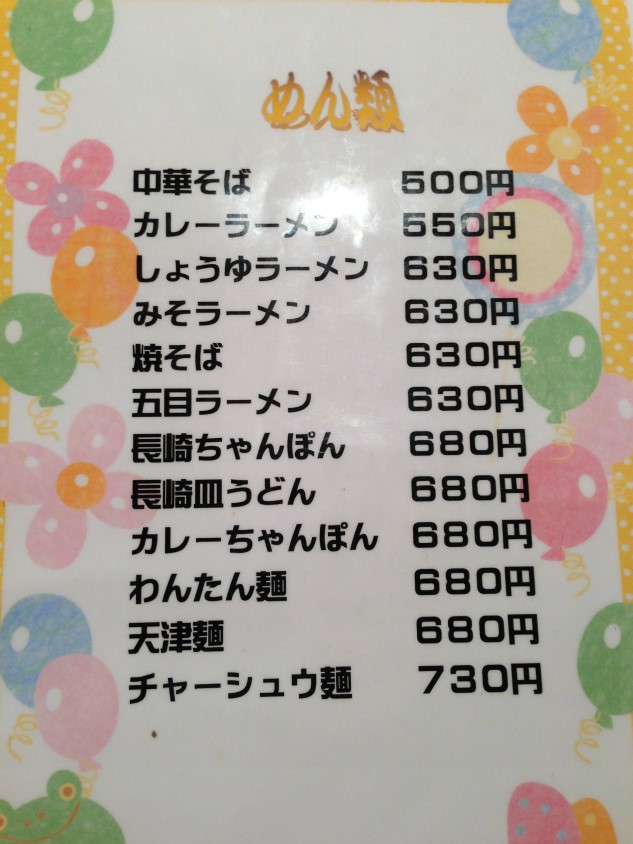 めん類
中華そば 500円
カレーラーメン 550円
しょうゆラーメン 630円
みそラーメン 630円
焼そば 630円
五目ラーメン 630円
長崎ちゃんぽん 680円
長崎皿うどん 680円
カレーちゃんぽん 680円
わんたん麺 680円
天津麺 680円
チャーシュウ麺 730円